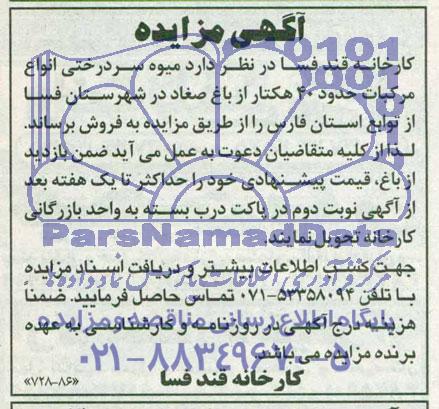 آگهی مزایده
کارخانه قند فسا در نظر دارد میوه سردرختی انواع
مرکبات حدود ۴۰ هکتار از باغ صغاد در شهرستان فسا
از توابع استان فارس را از طریق مزایده به فروش برساند.
لذا از کلیه متقاضیان دعوت به عمل می آید ضمن بازدید
از باغ، قیمت پیشنهادی خود را حداکثر تا یک هفته بعد
از آگهی نوبت دوم در پاکت درب بسته به واحد بازرگانی
کارخانه تحویل نمایند.
ParsNamadData
جهت کسب اطلاعات بیشتر و دریافت اسناد مزایده
با تلفن ۵۳۳۵۸۰۹۴-۰۷۱ تماس حاصل فرمایید. ضمنا
هزینه درج آگهی در روزنامه و کارشناسی به عهده
پایگاه اطلاع رسانی مناقصه و مزایده
برنده مزایده می باشد.
۰۲۱-۸۸۳۴۹۶۷۰-۵
کارخانه قند فسا
«۷۲۸-۸۶»